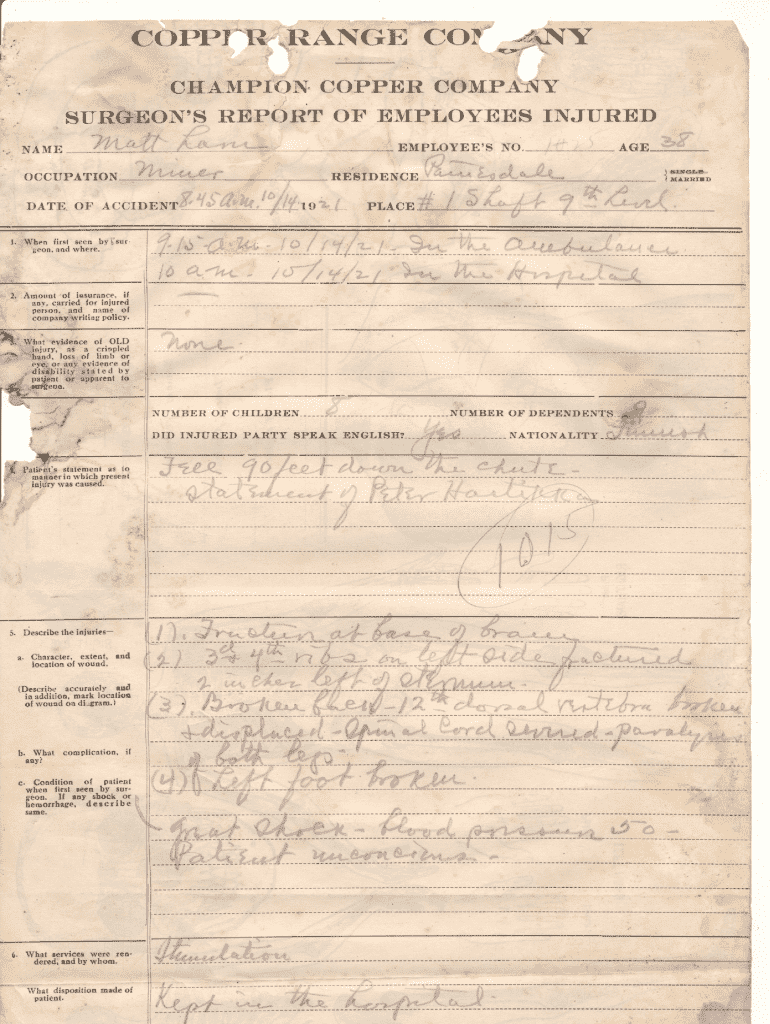 COPPER RANGE COMPANY
CHAMPION COPPER COMPANY
SURGEON'S REPORT OF EMPLOYEES INJURED
NAME Matt EMPLOYEE'S NO. AGE 38
OCCUPATION Miner RESIDENCE Painesdale SINGLE
MARRIED
DATE OF ACCIDENT 8.45 a.m. 10/14 1921 PLACE #1 Shaft 9th Level.
1. When first seen by sur-
geon, and where.
9.15 a.m. - 10/14/21 - In the Ambulance
10 a.m. - 10/14/21 In the Hospital
2. Amount of insurance, if
any, carried for injured
person, and name of
company writing policy.
—
What evidence of OLD
injury, as a crippled
hand, loss of limb or
eye, or any evidence of
disability stated by
patient or apparent to
surgeon.
None.
NUMBER OF CHILDREN 8 NUMBER OF DEPENDENTS
DID INJURED PARTY SPEAK ENGLISH? Yes NATIONALITY Finnish
4. Patient's statement as to
manner in which present
injury was caused.
Fell 90 feet down the chute -
statement of Peter
1015
5. Describe the injuries—
a. Character, extent, and
location of wound.
(Describe accurately and
in addition, mark location
of wound on diagram.)
b. What complication, if
any?
c. Condition of patient
when first seen by sur-
geon. If any shock or
hemorrhage, describe
same.
(1). Fracture at base of brain
(2) 3d & 4th ribs on left side fractured
2 inches left of sternum.
(3). Broken back - 12th dorsal vertebra broken
& displaced - Spinal Cord severed - paralysis
of both legs -
(4) Left foot broken.
great shock - blood pressure 50 -
Patient unconcious -
6. What services were ren-
dered, and by whom.
Stimulation
What disposition made of
patient.
Kept in the hospital.